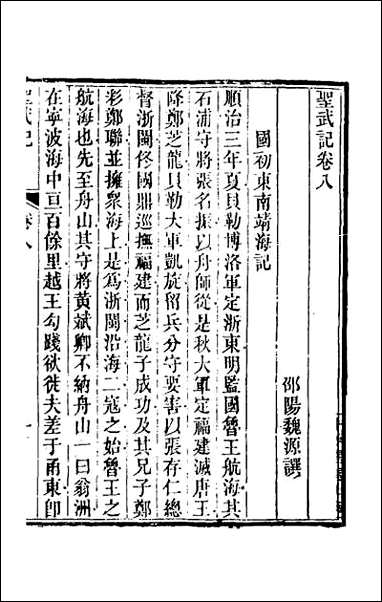 聖武記卷八
邵陽魏源譔
國初東南靖海記
順治三年夏貝勒博洛軍定浙東明監國魯王航海其
石浦守將張名振以舟師從是秋大軍定福建滅唐王
降鄭芝龍貝勒大軍凱旋留兵分守要害以張存仁總
督浙閩佟國鼐巡撫福建而芝龍子成功及其兄子鄭
彩鄭聯並擁衆海上是爲浙閩沿海二寇之始魯王之
航海也先至舟山其守將黃斌卿不納舟山一曰翁洲
在寧波海中亘百餘里越王勾踐欲徙夫差于甬東卽
聖武記
卷八
一